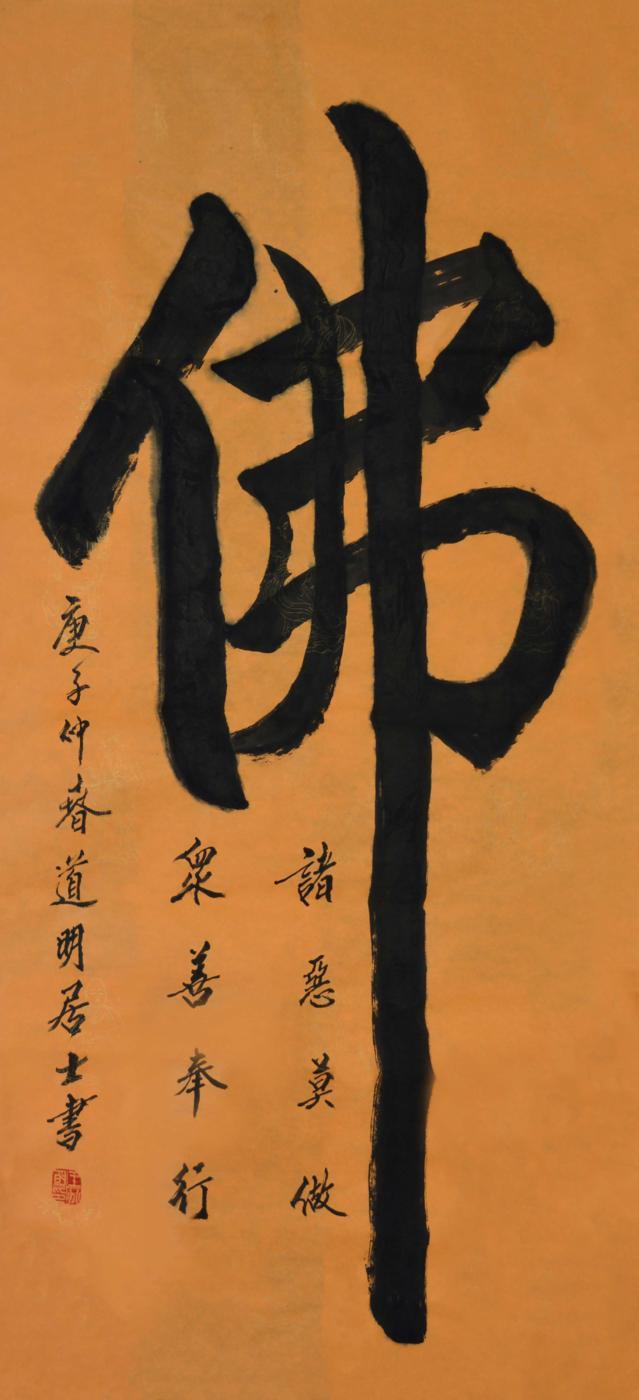 佛
諸惡莫做
衆善奉行
庚子仲春道明居士書